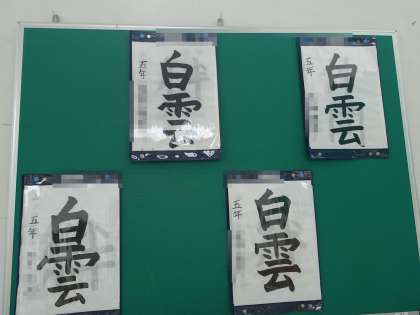 五年
白雲
五年
白雲
五年
白雲
五年
白雲